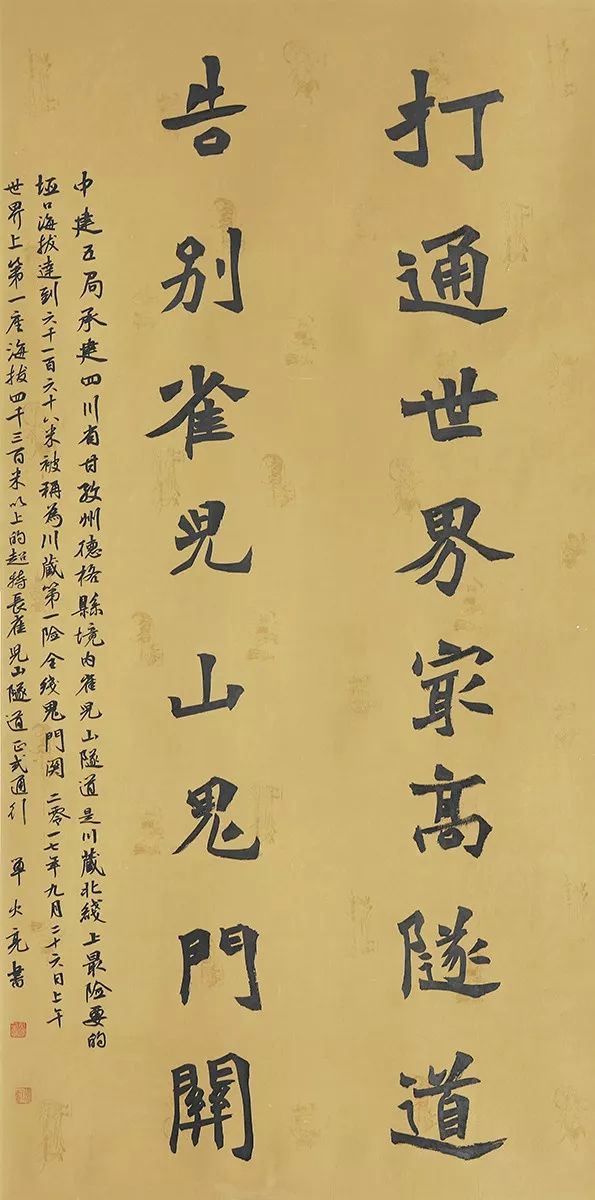 打通世界最高隧道
告别雀児山鬼門關
中建五局承建四川省甘孜州德格縣境内雀児山隧道是川藏北綫上最险要的
垭口海拔達到六千一百六十八米被稱為川藏第一险全线鬼門関二零一七年九月二十六日上午
世界上第一座海拔四千三百米以上的超特長雀児山隧道正式通行 單火亮書